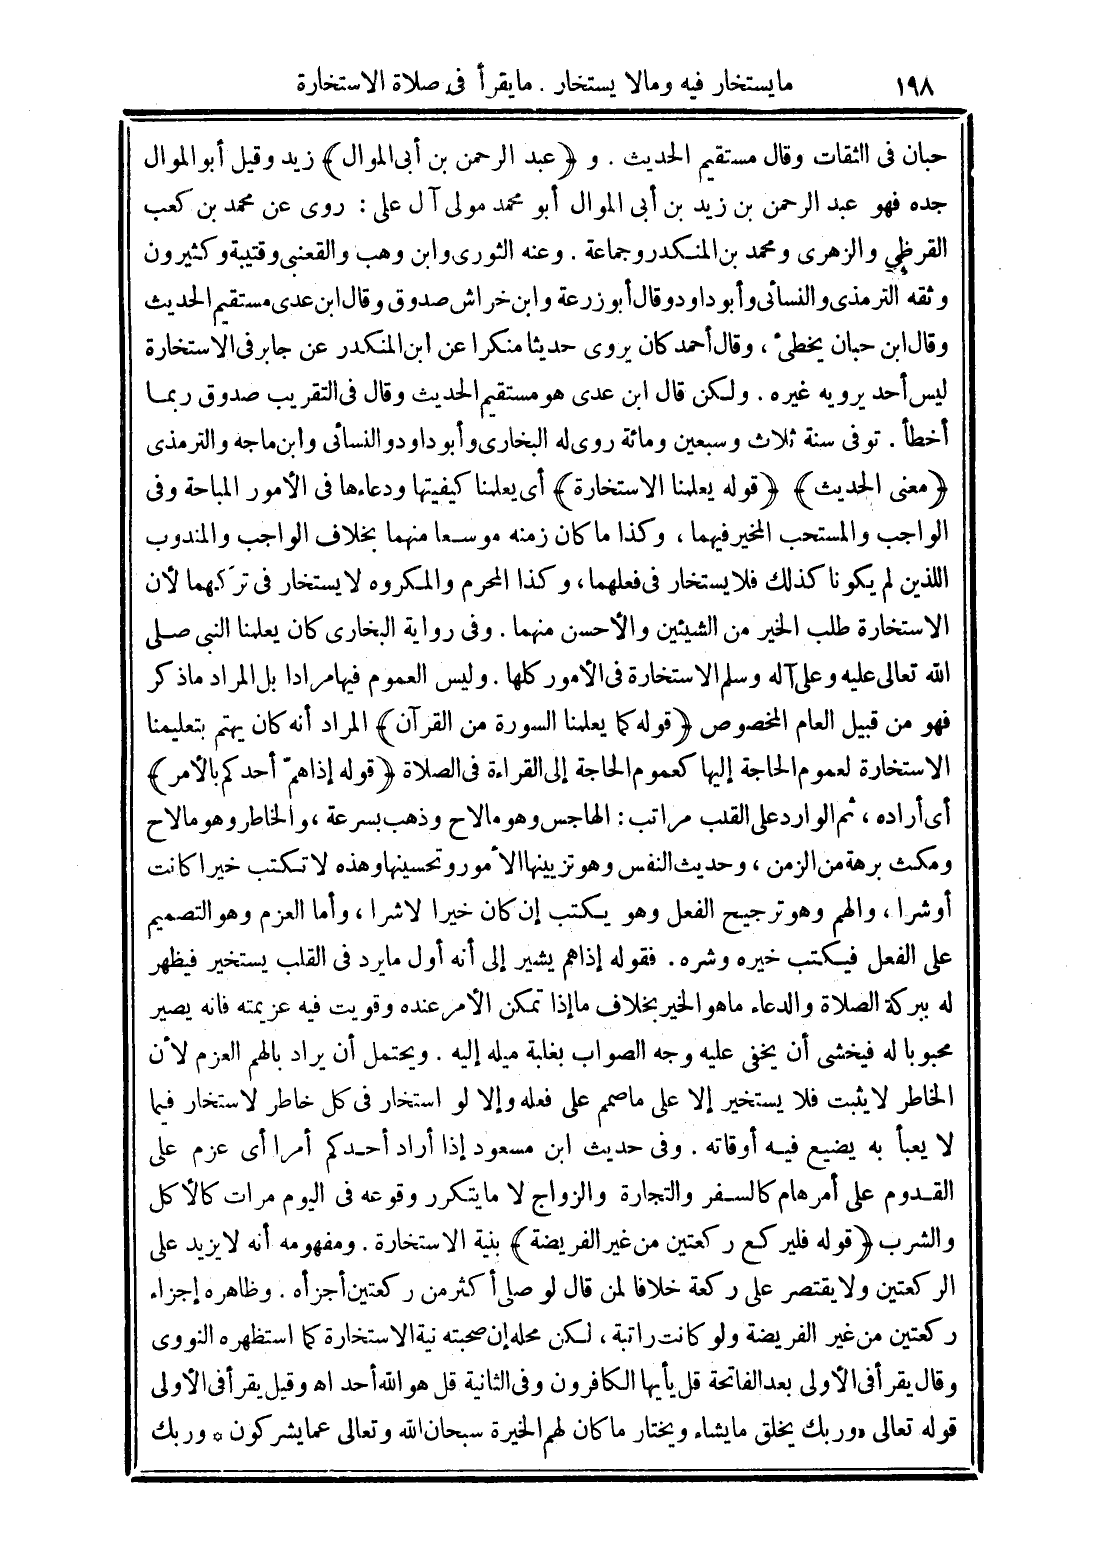 ١٩٨ مايستخار فيه ومالا يستخار . مايقرأ فى صلاة الاستخارة
حبان فى الثقات وقال مستقيم الحديث . و ﴿عبد الرحمن بن أبى الموال﴾ زيد وقيل أبو الموال
جده فهو عبد الرحمن بن زيد بن أبى الموال أبو محمد مولى آل على : روى عن محمد بن كعب
القرظى والزهرى ومحمد بن المنكدر وجماعة . وعنه الثورى وابن وهب والقعنبى وقتيبة وكثيرون
وثقه الترمذى والنسائى وأبو داود وقال أبو زرعة وابن خراش صدوق وقال ابن عدى مستقيم الحديث
وقال ابن حبان يخطئ ، وقال أحمد كان يروى حديثا منكرا عن ابن المنكدر عن جابر فى الاستخارة
ليس أحد يرويه غيره . ولكن قال ابن عدى هو مستقيم الحديث وقال فى التقريب صدوق ربما
أخطأ . توفى سنة ثلاث وسبعين ومائة روى له البخارى وأبو داود والنسائى وابن ماجه والترمذى
﴿معنى الحديث﴾ ﴿قوله يعلمنا الاستخارة﴾ أى يعلمنا كيفيتها ودعاءها فى الأمور المباحة وفى
الواجب والمستحب المخير فيهما ، وكذا ما كان زمنه موسعا منهما بخلاف الواجب والمندوب
اللذين لم يكونا كذلك فلا يستخار فى فعلهما ، وكذا المحرم والمكروه لا يستخار فى تركهما لأن
الاستخارة طلب الخير من الشيئين والأحسن منهما . وفى رواية البخارى كان يعلمنا النبى صلى
الله تعالى عليه وعلى آله وسلم الاستخارة فى الأمور كلها . وليس العموم فيها مرادا بل المراد ماذكر
فهو من قبيل العام المخصوص ﴿قوله كما يعلمنا السورة من القرآن﴾ المراد أنه كان يهتم بتعليمنا
الاستخارة لعموم الحاجة إليها كعموم الحاجة إلى القراءة فى الصلاة ﴿قوله إذا همّ أحدكم بالأمر﴾
أى أراده ، ثم الوارد على القلب مراتب : الهاجس وهو مالاح وذهب بسرعة ، والخاطر وهو مالاح
ومكث برهة من الزمن ، وحديث النفس وهو تزيينها الأمور وتحسينها وهذه لا تكتب خيرا كانت
أو شرا ، والهم وهو ترجيح الفعل وهو يكتب إن كان خيرا لا شرا ، وأما العزم وهو التصميم
على الفعل فيكتب خيره وشره . فقوله إذا هم يشير إلى أنه أول مايرد فى القلب يستخير فيظهر
له ببركة الصلاة والدعاء ماهو الخير بخلاف ماإذا تمكن الأمر عنده وقويت فيه عزيمته فانه يصير
محبوبا له فيخشى أن يخفى عليه وجه الصواب بغلبة ميله إليه . ويحتمل أن يراد بالهم العزم لأن
الخاطر لا يثبت فلا يستخير إلا على ماصمم على فعله وإلا لو استخار فى كل خاطر لاستخار فيما
لا يعبأ به يضيع فيه أوقاته . وفى حديث ابن مسعود إذا أراد أحدكم أمرا أى عزم على
القدوم على أمر هام كالسفر والتجارة والزواج لا مايتكرر وقوعه فى اليوم مرات كالأكل
والشرب ﴿قوله فليركع ركعتين من غير الفريضة﴾ بنية الاستخارة . ومفهومه أنه لا يزيد على
الركعتين ولا يقتصر على ركعة خلافا لمن قال لو صلى أكثر من ركعتين أجزأه . وظاهره إجزاء
ركعتين من غير الفريضة ولو كانت راتبة ، لكن محله إن صحبته نية الاستخارة كما استظهره النووى
وقال يقرأ فى الأولى بعد الفاتحة قل يأيها الكافرون وفى الثانية قل هو الله أحد اه وقيل يقرأ فى الأولى
قوله تعالى «وربك يخلق مايشاء ويختار ماكان لهم الخيرة سبحان الله وتعالى عما يشركون * وربك